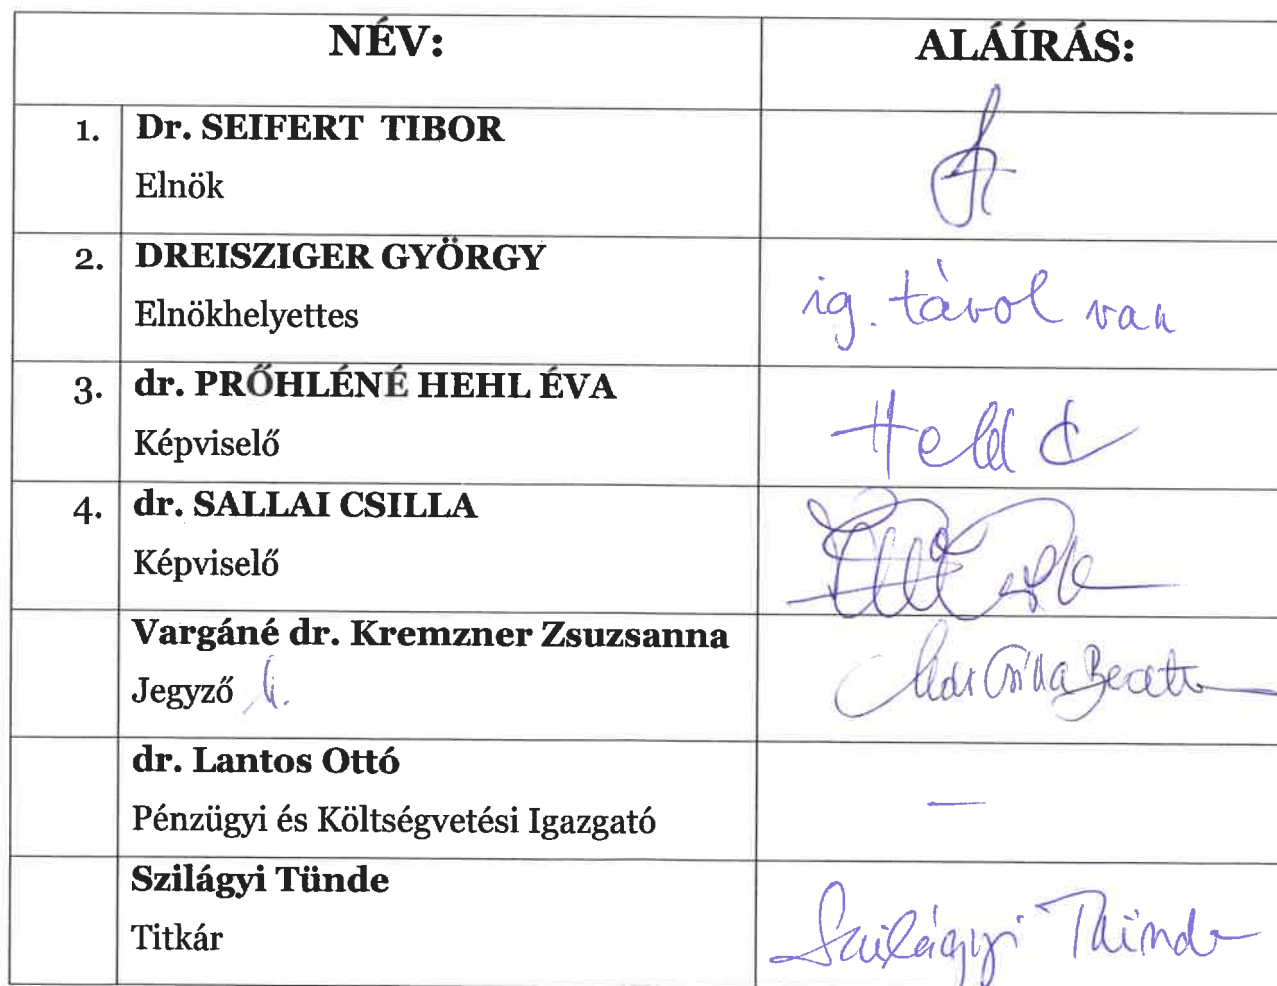 NÉV: ALÁÍRÁS:
1. Dr. SEIFERT TIBOR
Elnök
2. DREISZIGER GYÖRGY
Elnökhelyettes
ig. távol van
3. dr. PRŐHLÉNÉ HEHL ÉVA
Képviselő
4. dr. SALLAI CSILLA
Képviselő
Vargáné dr. Kremzner Zsuzsanna
Jegyző h.
dr. Lantos Ottó
Pénzügyi és Költségvetési Igazgató
—
Szilágyi Tünde
Titkár
Szilágyi Tünde